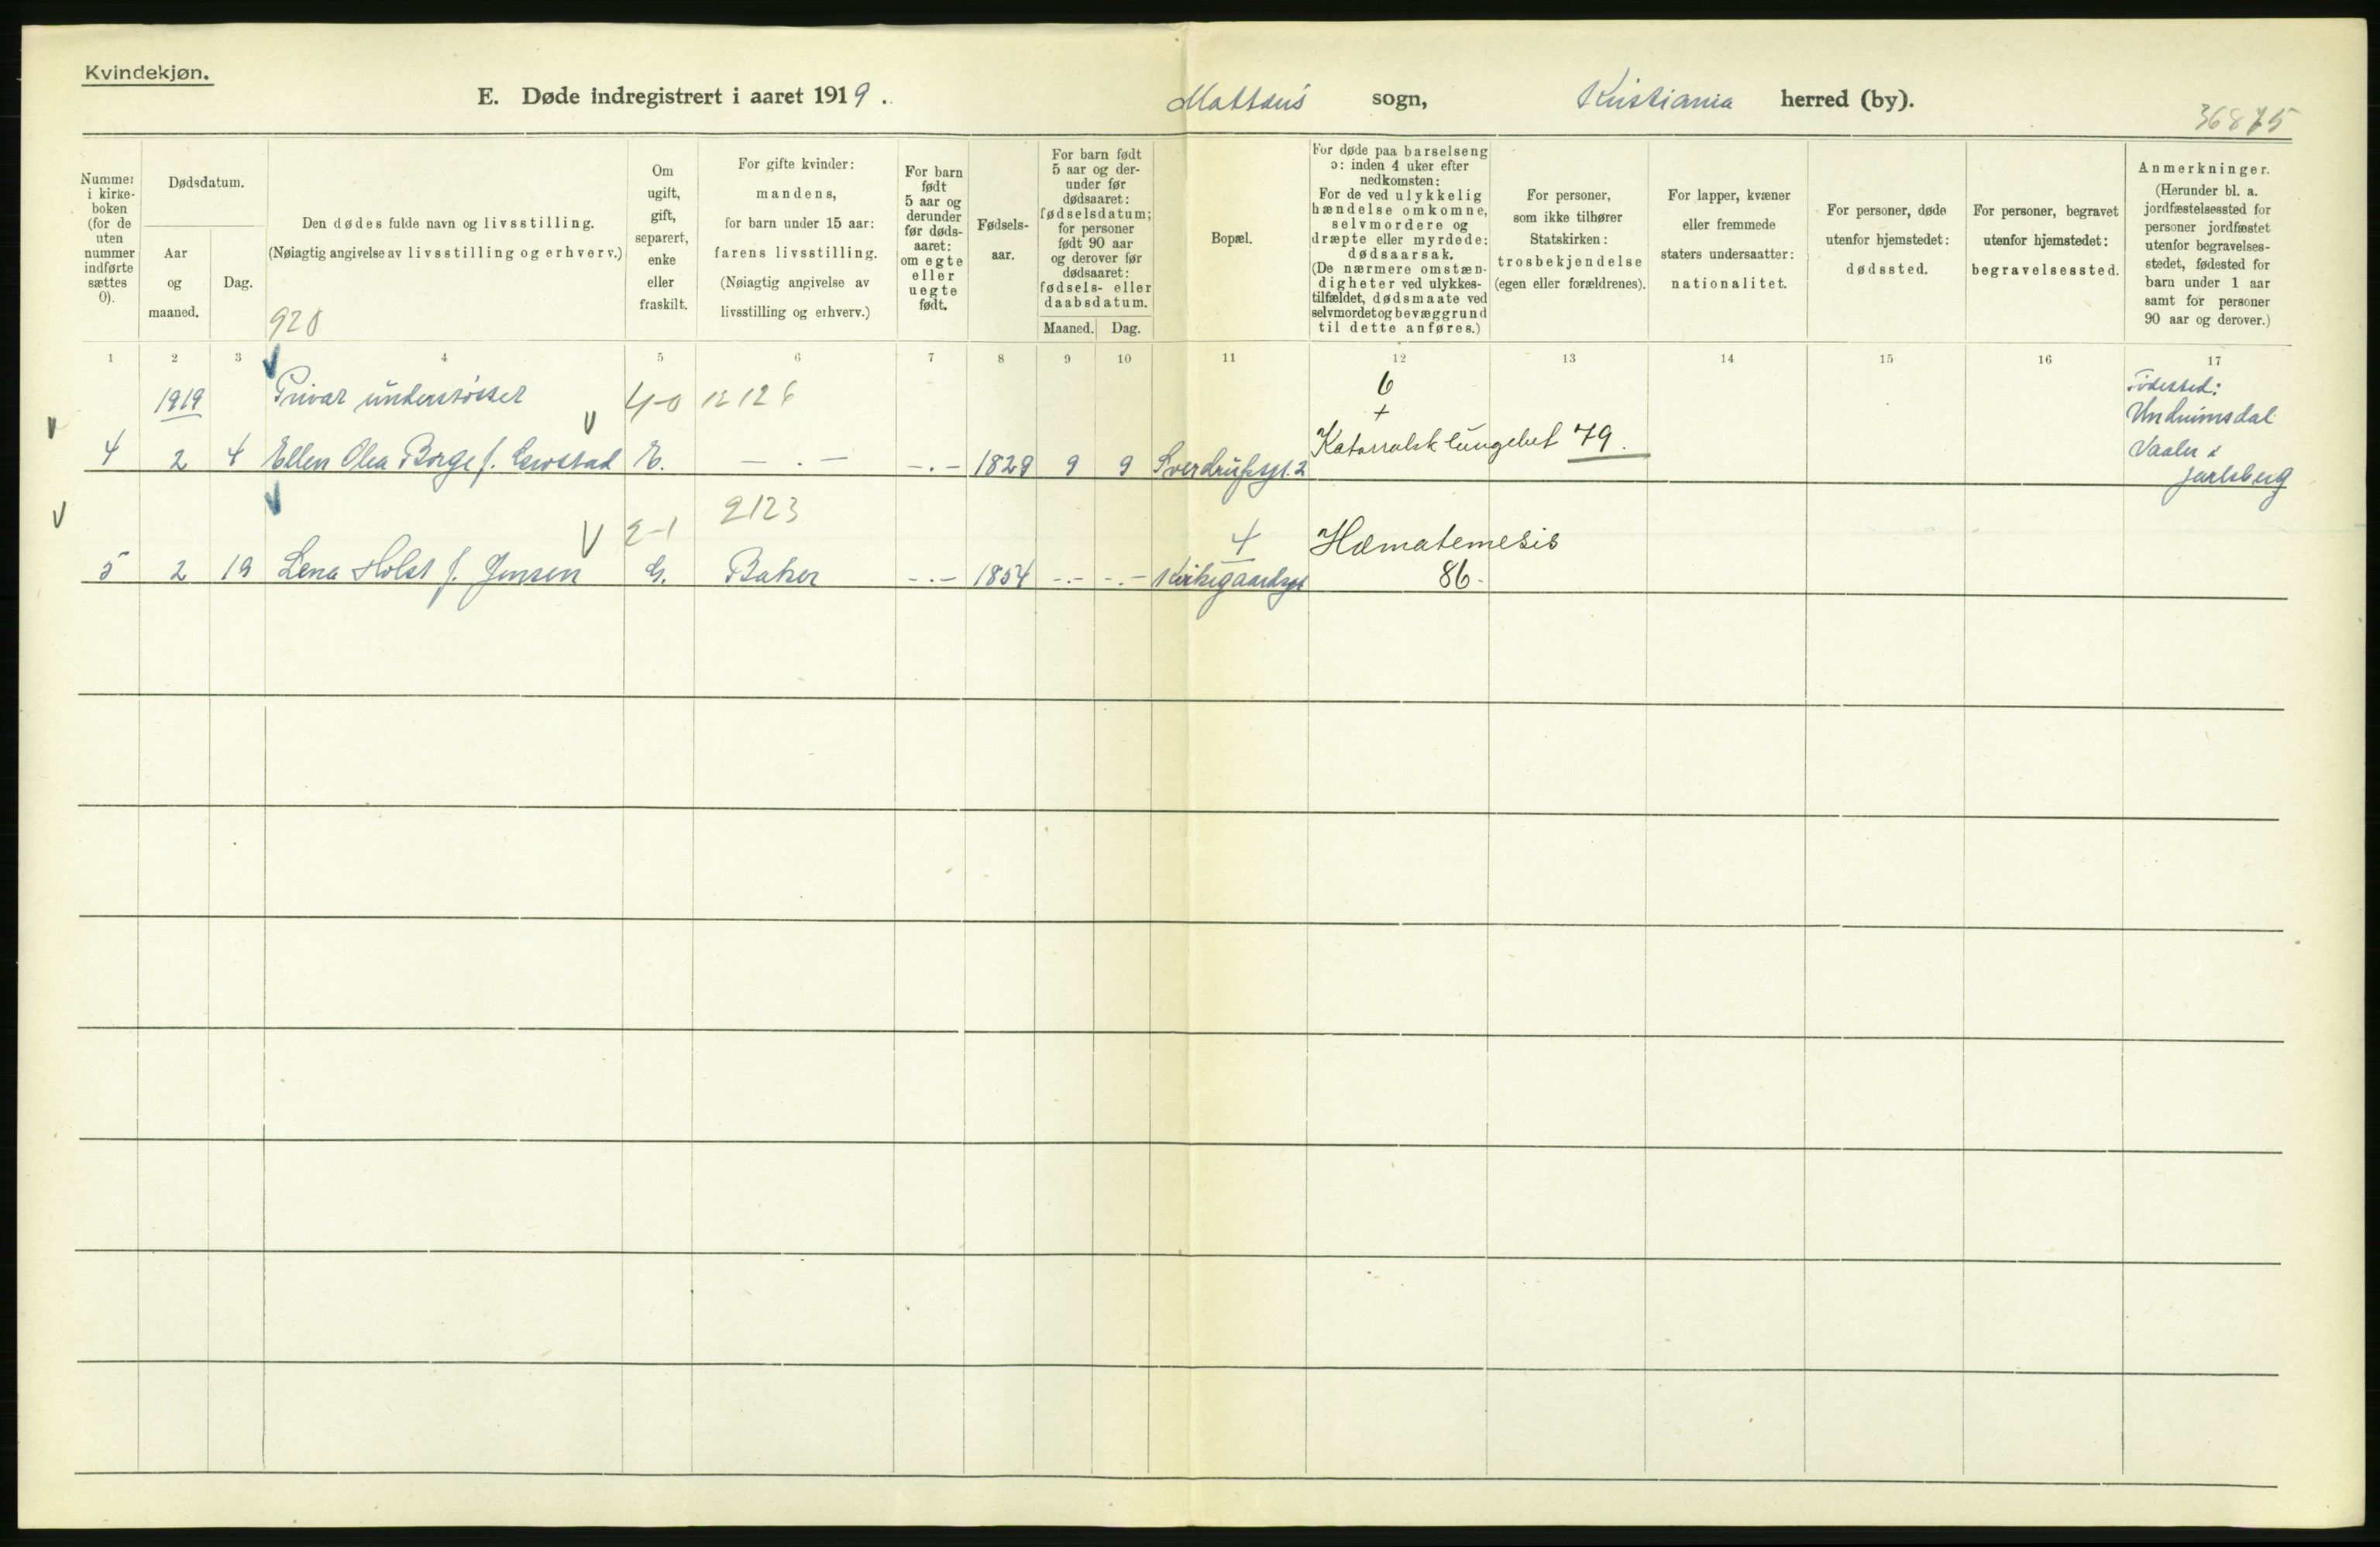 Kvindekjøn.
E. Døde indregistrert i aaret 1919.
Mattæus sogn, Kristiania herred (by).
36875
Nummer i kirke-boken (for de uten nummer indførte sættes 0).
Dødsdatum.
Aar og maaned.
Dag.
Den dødes fulde navn og livsstilling.
(Nøiagtig angivelse av livsstilling og erhverv.)
920
Om ugift, gift, separert, enke eller fraskilt.
For gifte kvinder: mandens, for barn under 15 aar: farens livsstilling. (Nøiagtig angivelse av livsstilling og erhverv.)
For barn født 5 aar og derunder før døds-aaret: om egte eller uegte født.
Fødsels-aar.
For barn født 5 aar og der-under før dødsaaret: fødselsdatum; for personer født 90 aar og derover før dødsaaret: fødsels- eller daabsdatum.
Maaned. Dag.
Bopæl.
For døde paa barselseng ɔ: inden 4 uker efter nedkomsten: For de ved ulykkelig hændelse omkomne, selvmordere og dræpte eller myrdede: dødsaarsak. (De nærmere omstæn-digheter ved ulykkes-tilfældet, dødsmaate ved selvmordet og bevæggrund til dette anføres.)
For personer, som ikke tilhører Statskirken: trosbekjendelse (egen eller forældrenes).
For lapper, kvæner eller fremmede staters undersaatter: nationalitet.
For personer, døde utenfor hjemstedet: dødssted.
For personer, begravet utenfor hjemstedet: begravelsessted.
Anmerkninger. (Herunder bl. a. jordfæstelsessted for personer jordfæstet utenfor begravelses-stedet, fødested for barn under 1 aar samt for personer 90 aar og derover.)
1 2 3 4 5 6 7 8 9 10 11 12 13 14 15 16 17
1919 Privat understøttet 4-0 12126 6 Fødested:
+ Undrumsdal
4 2 4 Ellen Olea Borge f. E. — . — -.- 1829 9 9 Sverdrupsgt. 2 Katarralsk lungebet 79. Vaaler i
Jarlsberg
2-1 2123 4 Hæmatemesis
5 2 19 Lena Holst f. Jensen G. Baker -.- 1854 -.- -.- Kirkegaardsgt 86.